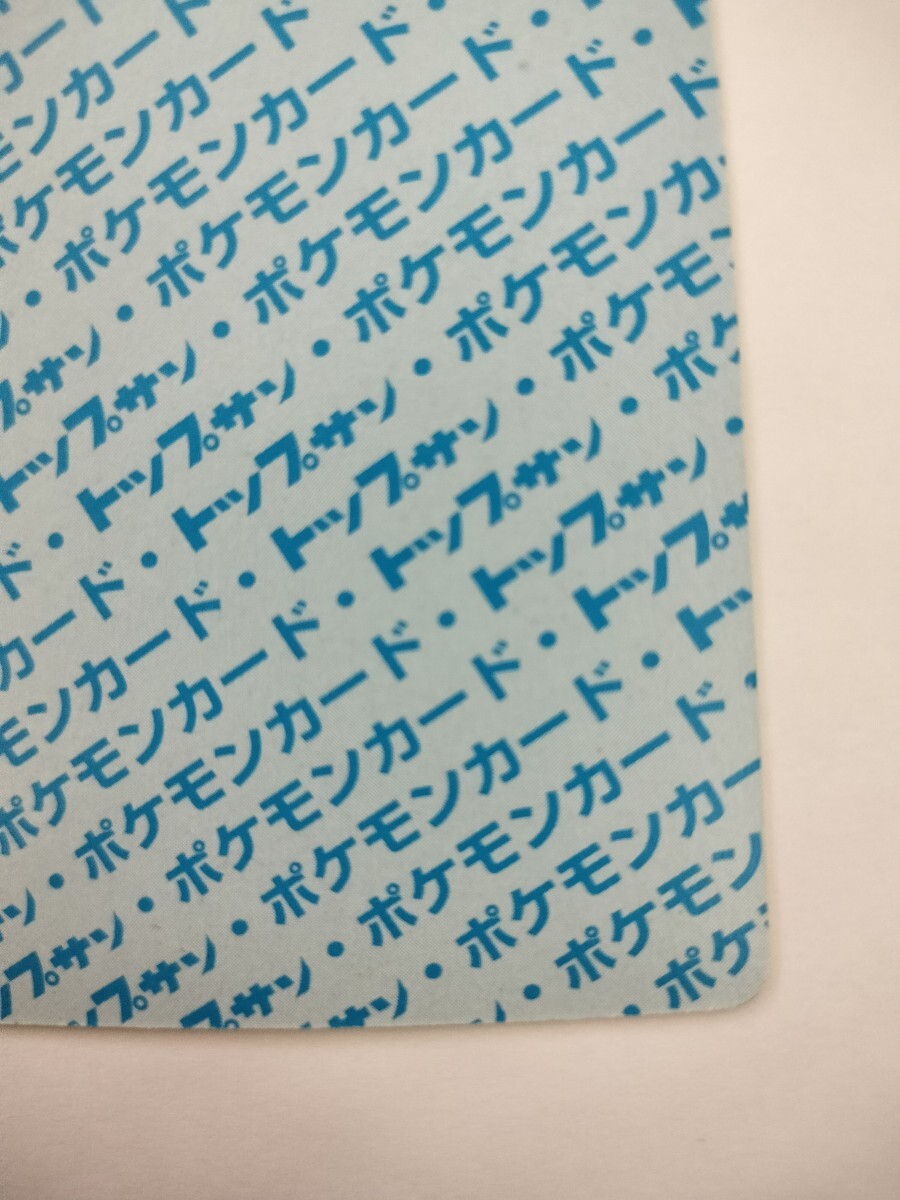 カー
モンカード
ポケモンカード
ン・ポケモンカード・
プサン・ポケモンカード・
トップサン・ポケモンカード・
ド・トップサン・ポケモンカード
カード・トップサン・ポケモンカ
モンカード・トップサン・ポケモン
ポケモンカード・トップサン・ポケ
ン・ポケモンカード・トップサン・
プサン・ポケモンカード・トップサ
プサン・ポケモンカード・トッ
プサン・ポケモンカード・
サン・ポケモンカー
・ポケモン
・ポケ